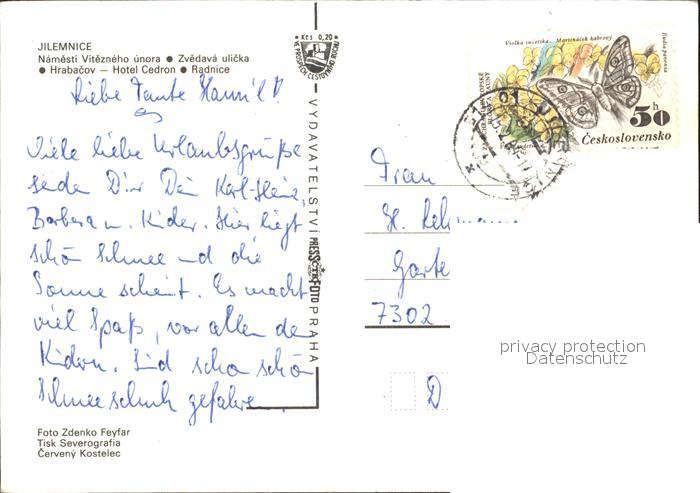 JILEMNICE
Náměstí Vítězného února ● Zvědavá ulička
● Hrabačov — Hotel Cedron ● Radnice
Liebe Tante
Viele liebe Urlaubsgrüße
Dir Dein Karl-Heinz,
Barbara u. Kinder. Hier liegt
schön Schnee und die
Sonne scheint. Es macht
viel Spaß, vor allem den
Kindern. Sind schon schön
Schneeschuh gefahren.
Foto Zdenko Feyfar
Tisk Severografia
Červený Kostelec
Kčs 0,20
VE PROSPĚCH CESTOVNÍHO RUCHU
VYDAVATELSTVÍ PRESSFOTO PRAHA
Martináček habrový
50 h
Československo
Frau
Garte
7302
D
privacy protection
Datenschutz